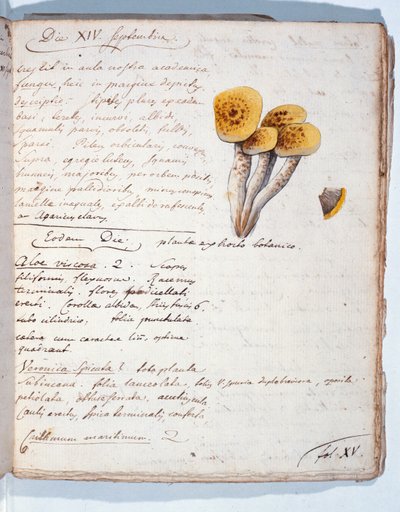 Die XIV. Septembris.
crescit in aula nostra academica
fungus, hic in margine depictus
descriptio. Stipites plures ex eadem
basi, teretes, incurvi, albidi,
squamulis parvis, obsoletis, fuscis,
sparsi. Pileus orbicularis, convexus
supra egregie luteus, squamis
majoribus per orbem
margine pallidiori,
lamellae inaequales, ex albo rufescentes,
an Agaricus clavus.
Eodem Die. plantae ex horto botanico.
Aloe viscosa. 2. Scapus
filiformis, flexuosus. Racemus
terminalis, flores pedicellati,
erecti. Corolla albida, striis 6,
sub cilindrica, folia punctulata
cetera cum caractere Lin. optime
quadrant.
Veronica Spicata? tota planta
subincana. folia lanceolata, opposita
petiolata, obtuse serrata, acuminata
Caulis erectus, spica terminalis, conferta.
Crithmum maritimum. 2
fol. XV.